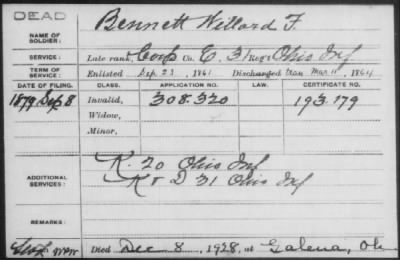 DEAD
NAME OF SOLDIER: Bennett Willard F.
SERVICE: Late rank, Corp Co. E, 31 Reg't Ohio Inf
TERM OF SERVICE: Enlisted Sep. 23, 1861 Discharged Mar. 11, 1864
DATE OF FILING. CLASS. APPLICATION NO. LAW. CERTIFICATE NO.
1879 Sep 8 Invalid, 308.320 193.179
Widow,
Minor,
ADDITIONAL SERVICES: K. 20 Ohio Inf
K & D 31 Ohio Inf
REMARKS:
Died Dec 8, 1928, at Galena, Oh